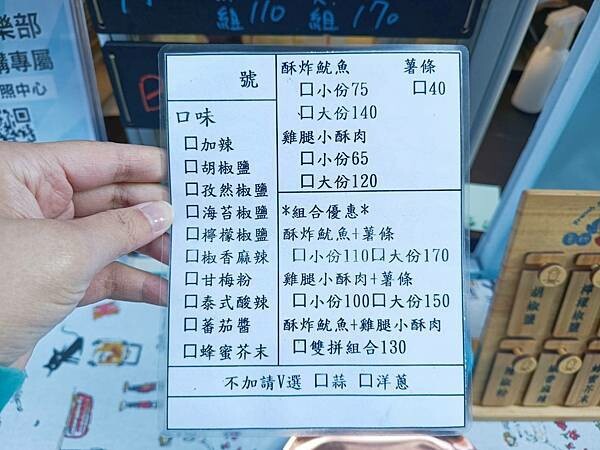 組110 組170
樂部
購專屬
照中心
號
口味
☐加辣
☐胡椒鹽
☐孜然椒鹽
☐海苔椒鹽
☐檸檬椒鹽
☐椒香麻辣
☐甘梅粉
☐泰式酸辣
☐蕃茄醬
☐蜂蜜芥末
酥炸魷魚 薯條
☐小份75 ☐40
☐大份140
雞腿小酥肉
☐小份65
☐大份120
*組合優惠*
酥炸魷魚+薯條
☐小份110☐大份170
雞腿小酥肉+薯條
☐小份100☐大份150
酥炸魷魚+雞腿小酥肉
☐雙拼組合130
不加請V選 ☐蒜 ☐洋蔥
胡椒鹽
檸檬椒鹽
蜂蜜芥末